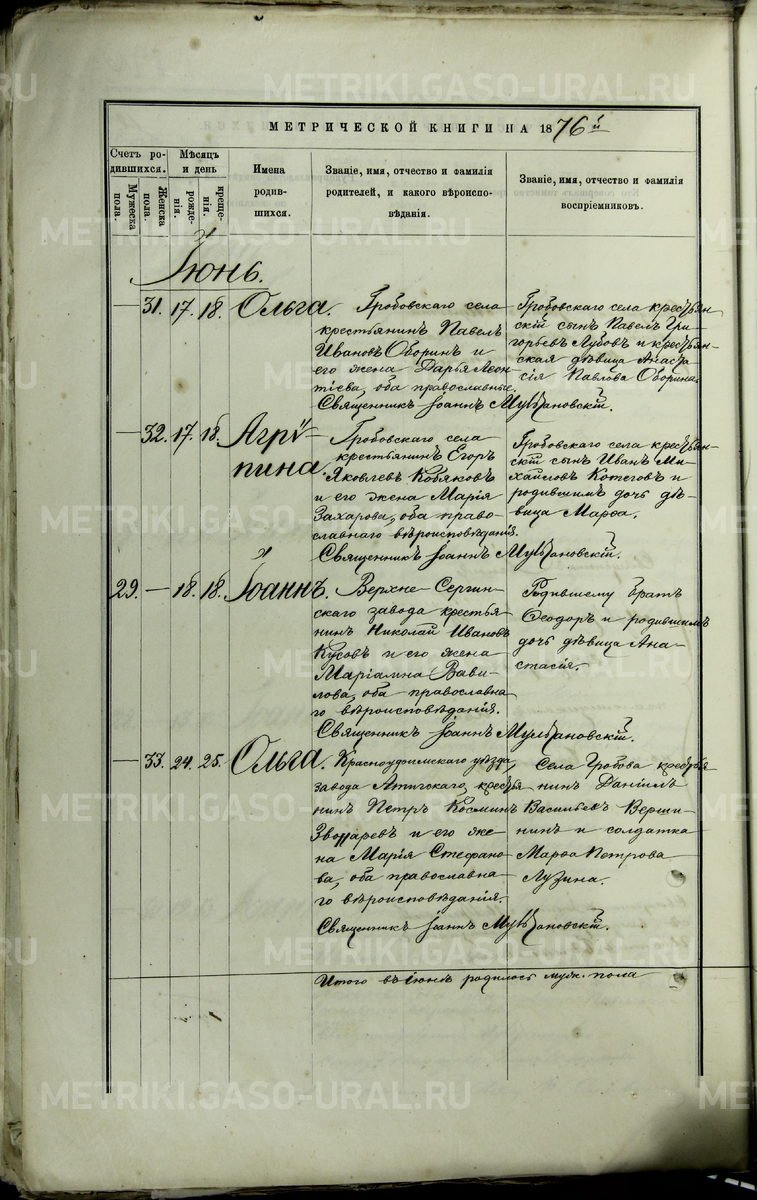 МЕТРИЧЕСКОЙ КНИГИ НА 1876й
Счетъ ро-
дившихся.
Мужеска
пола.
Женска
пола.
Мѣсяцъ
и день
рожде-
нія.
креще-
нія.
Имена
родив-
шихся.
Званіе, имя, отчество и фамилія
родителей, и какого вѣроиспо-
вѣданія.
Званіе, имя, отчество и фамилія
воспріемниковъ.
Іюнь.
— 31. 17. 18. Ольга.
Гробовскаго села
крестьянинъ Павелъ
Ивановъ Оборинъ и
его жена Дарья Леон-
тіева, оба православные.
Священникъ Іоаннъ
Гробовскаго села крестьян-
скій сынъ Павелъ Гри-
горьевъ Лубовъ и крестьян-
ская дѣвица Анаста-
сія Павлова Оборина.
— 32. 17. 18. Агрі-
пина.
Гробовскаго села
крестьянинъ Егоръ
Яковлевъ Кобяковъ
и его жена Марія
Захарова, оба право-
славнаго вѣроисповѣданія.
Священникъ Іоаннъ
Гробовскаго села крестьян-
скій сынъ Иванъ Ми-
хайловъ Котеговъ и
родившимъ дочь дѣ-
вица Марѳа.
29. — 18. 18. Іоаннъ.
Верхне-Сергин-
скаго завода крестья-
нинъ Николай Ивановъ
Кусовъ и его жена
Маріамна Вави-
лова, оба православна-
го вѣроисповѣданія.
Священникъ Іоаннъ
Родившему братъ
Ѳеодоръ и родившимъ
дочь дѣвица Ана-
стасія.
— 33. 24. 25. Ольга.
Красноуфимскаго уѣзда,
завода Атигскаго, крестья-
нинъ Петръ Косминъ
и его же-
на Марія Стефано-
ва, оба православна-
го вѣроисповѣданія.
Священникъ Іоаннъ
Села Гробова крестья-
нинъ Даніилъ
Васильевъ Верши-
нинъ и солдатка
Марѳа Петрова
Лузина.
Итого въ іюнѣ родилось муж. пола
METRIKI.GASO-URAL.RU